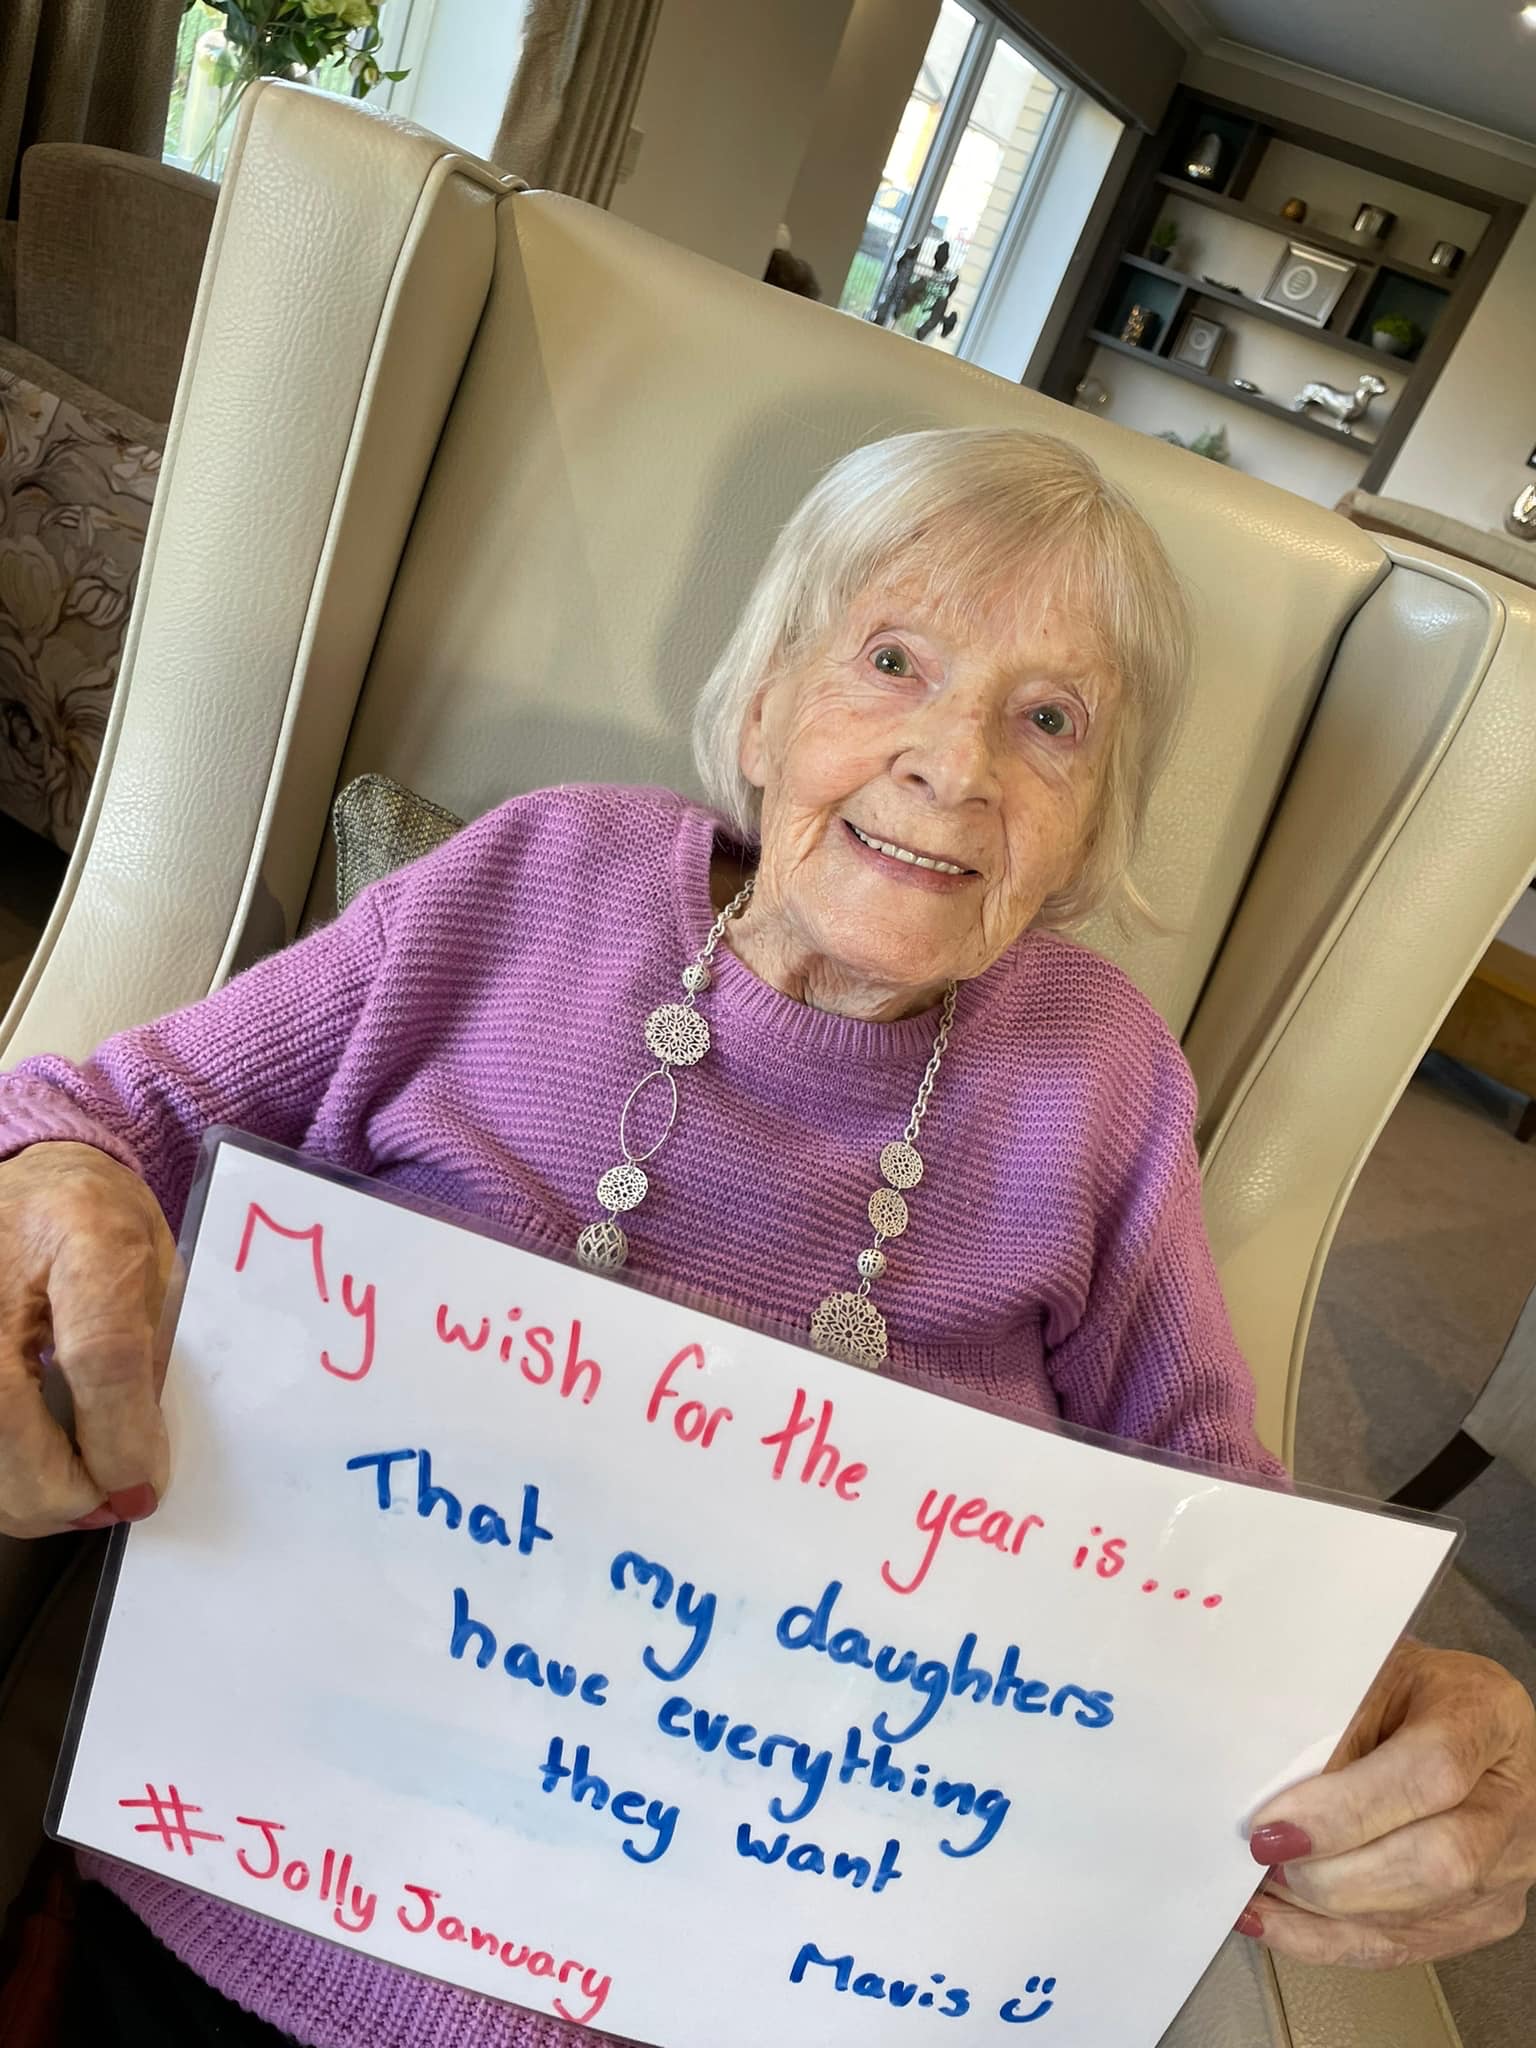 My wish for the year is...
That my daughters
have everything
they want
#Jolly January
Mavis ü